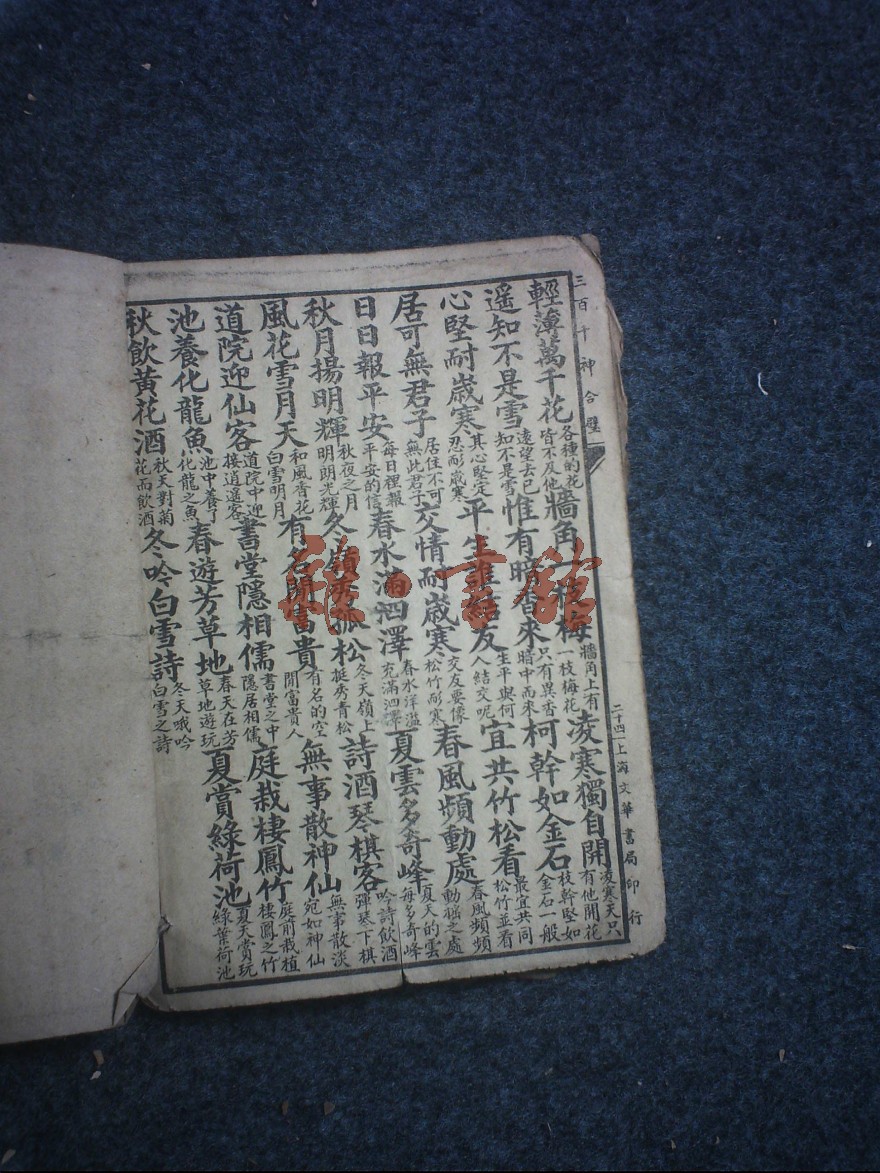 三百千神合璧
二十四 上海文華書局印行
輕薄萬千花 各種的花皆不及他 牆角一枝梅 牆角上有一枝梅花 凌寒獨自開 凌寒天只有他開花
遥知不是雪 遠望去已知不是雪 惟有暗香來 只有異香暗中而來 柯幹如金石 枝幹堅如金石一般
心堅耐歲寒 其心堅定忍耐歲寒 平生誰結友 生平與何人結交呢 宜共竹松看 最宜共同松竹並看
居可無君子 居住不可無此君子 交情耐歲寒 交友要像松竹耐寒 春風頻動處 春風頻頻動搖之處
日日報平安 每日裡報平安的信 春水滿泗澤 春水洋溢充滿泗澤 夏雲多奇峰 夏天的雲每多奇峰
秋月揚明輝 秋夜之月明朗光輝 冬嶺秀孤松 冬天嶺上挺秀青松 詩酒琴棋客 吟詩飲酒彈琴下棋
風花雪月天 和風香花白雪明月 有名閒富貴 有名的空閒富貴人 無事散神仙 無事散淡宛如神仙
道院迎仙客 道院中迎接逍遥客 書堂隱相儒 書堂之中隱居相儒 庭栽棲鳳竹 庭前栽植棲鳳之竹
池養化龍魚 池中養了化龍之魚 春遊芳草地 春天在芳草地遊玩 夏賞綠荷池 夏天賞玩綠葉荷池
秋飲黃花酒 秋天對菊花而飲酒 冬吟白雪詩 冬天哦吟白雪之詩
雜·書館